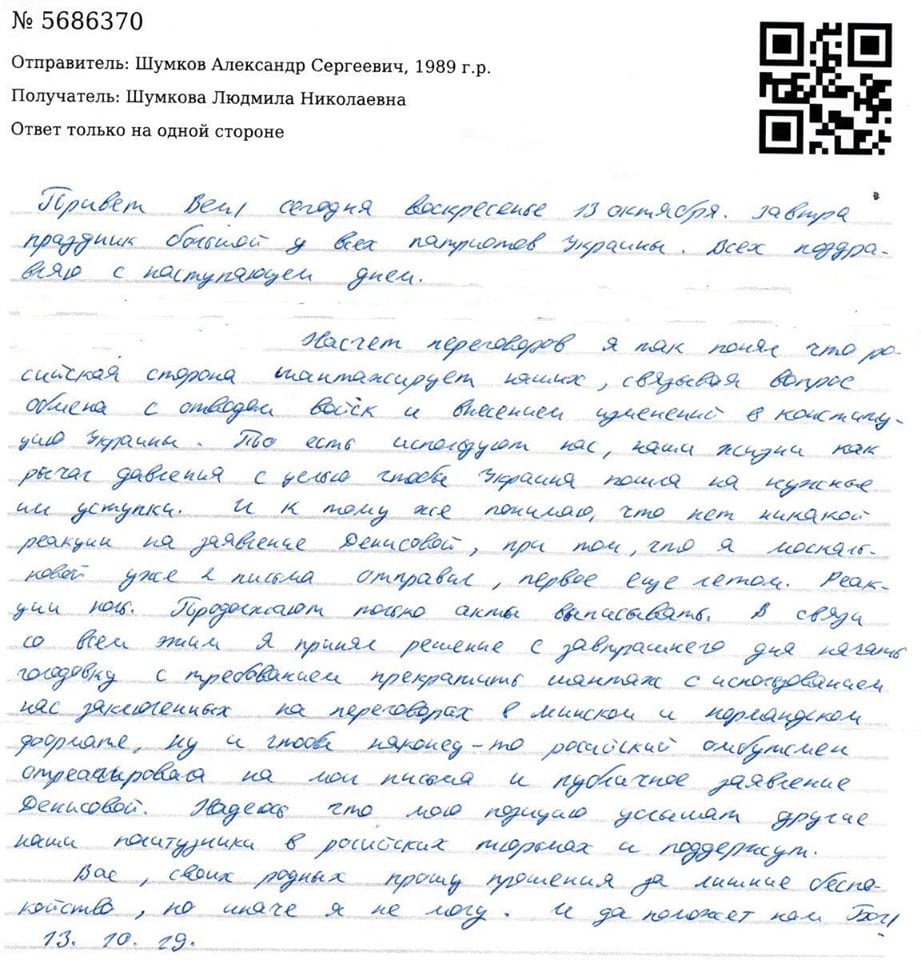 № 5686370
Отправитель: Шумков Александр Сергеевич, 1989 г.р.
Получатель: Шумкова Людмила Николаевна
Ответ только на одной стороне
Привет Вем! сегодня воскресенье 13 октября. завтра
праздник большой у всех патриотов Украины. Всех поздра-
вляю с наступающем днем.
Насчет переговоров я так понял что ро-
сийская сторона шантажирует наших, связывая вопрос
обмена с отводом войск и внесением изменений в конститу-
цию Украины. То есть используют нас, наши жизни как
рычаг давления с целью чтобы Украина пошла на нужные
им уступки. И к тому же понимаю, что нет никакой
реакции на заявление Денисовой, при том, что я москаль-
ковой уже 2 письма отправил, первое еще летом. Реак-
ции ноль. Продолжают только акты выписывать. В связи
со всем этим я принял решение с завтрашнего дня начать
голодовку с требованием прекратить шантаж с использованием
нас заключенных на переговорах в минском и нормандском
формате, ну и чтобы наконец-то российский омбутсмен
отреагировала на мои письма и публичное заявление
Денисовой. Надеюсь что мою позицию услышат другие
наши политузники в росийских тюрьмах и поддержут.
Вас, своих родных прошу прошения за лишние беспо-
койство, но иначе я не могу. И да поможет нам Бог!
13. 10. 19.